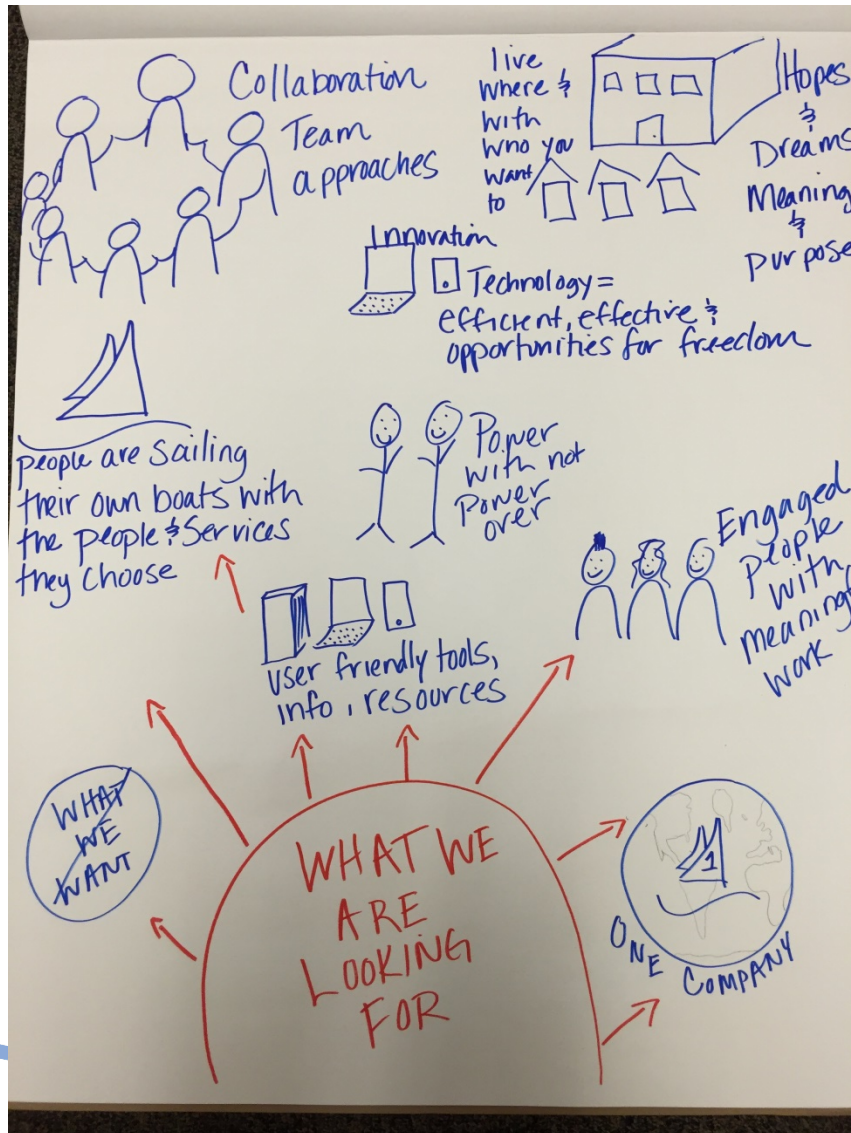 Collaboration
Team
approaches
live
where &
with
who you
want
to
Hopes
&
Dreams
Meaning
&
purpose
Innovation
Technology =
efficient, effective &
opportunities for freedom
people are sailing
their own boats with
the people & Services
they choose
Power
with not
Power
over
Engaged
People
with
meaning
work
user friendly tools,
info, resources
WHAT
WE
WANT
WHAT WE
ARE
LOOKING
FOR
1
ONE COMPANY